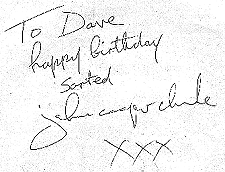 To Dave
happy birthday
sorted
john cooper clarke
XXX